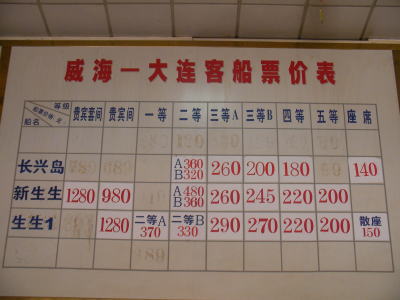 威海—大连客船票价表
等级 贵宾套间 贵宾间 一等 二等 三等A 三等B 四等 五等 座席
船名
长兴岛 A360 B320 260 200 180 140
新生生 1280 980 A480 B360 260 245 220 200
生生1 1280 二等A 370 二等B 330 290 270 220 200 散座 150